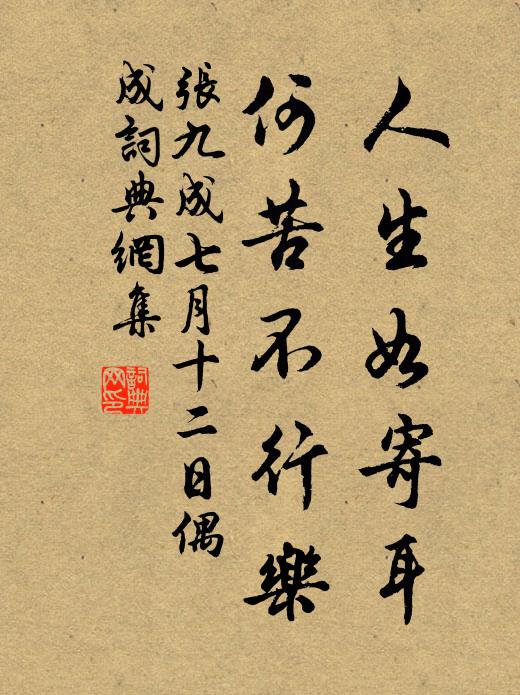 人生如寄耳
何苦不行樂
張九成七月十二日偶
成詞典網集
詞典
网印